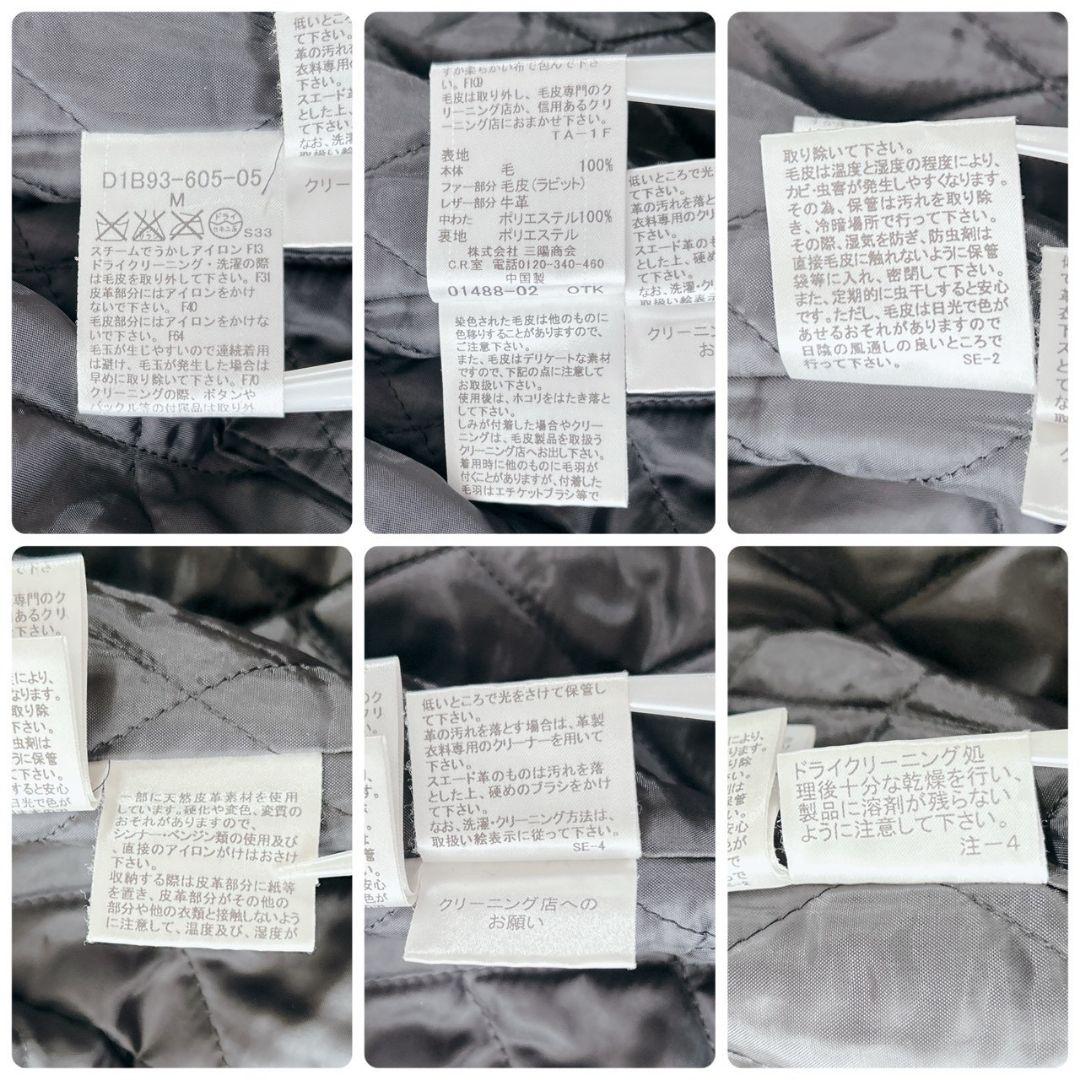 低いところ
て下さい。
革の汚れを
衣料専用の
スエード革
とした上、
て下さい。
なお、洗濯
取扱い絵
クリー
D1B93-605-05
M
ドライ
セキユ系
S33
スチームでうかしアイロン F13
ドライクリーニング・洗濯の際
は毛皮を取り外して下さい。F31
皮革部分にはアイロンをかけ
ないで下さい。 F40
毛皮部分にはアイロンをかけな
いで下さい。 F64
毛玉が生じやすいので連続着用
は避け、毛玉が発生した場合は
早めに取り除いて下さい。F70
クリーニングの際、ボタンや
バックル等の付属品は取り外
すか柔らかい布で包んで下さ
い。F109
毛皮は取り外し、毛皮専門のク
リーニング店か、信用あるクリ
ーニング店におまかせ下さい。
TA-1F
表地
本体 毛 100%
ファー部分 毛皮(ラビット)
レザー部分 牛革
中わた ポリエステル100%
裏地 ポリエステル
株式会社 三陽商会
C.R.室 電話0120-340-460
中国製
01488-02 OTK
染色された毛皮は他のものに
色移りすることがありますので、
ご注意下さい。
また、毛皮はデリケートな素材
ですので、下記の点に注意して
お取扱い下さい。
使用後は、ホコリをはたき落と
して下さい。
しみが付着した場合やクリー
ニングは、毛皮製品を取扱う
クリーニング店へお出し下さい。
着用時に他のものに毛羽が
付くことがありますが、付着した
毛羽はエチケットブラシ等で
低いところで光
て下さい。
革の汚れを落と
衣料専用のクリ
下さい。
スエード革の
とした上、硬め
て下さい。
なお、洗濯・
取扱い絵表示
クリーニ
お
取り除いて下さい。
毛皮は温度と湿度の程度により、
カビ・虫害が発生しやすくなります。
その為、保管は汚れを取り除
き、冷暗場所で行って下さい。
その際、湿気を防ぎ、防虫剤は
直接毛皮に触れないように保管
袋等に入れ、密閉して下さい。
また、定期的に虫干しすると安心
です。ただし、毛皮は日光で色が
あせるおそれがありますので
日陰の風通しの良いところで
行って下さい。 SE-2
で下さ
専門のク
あるクリ
下さい。
により、
なります。
取り除
さい。
虫剤は
うに保管
さい。
すると安心
日光で色が
一部に天然皮革素材を使用
しています。硬化や変色、変質の
おそれがありますので、
シンナー・ベンジン類の使用及び
、直接のアイロンがけはおさけ
下さい。
収納する際は皮革部分に紙等
を置き、皮革部分がその他の
部分や他の衣類と接触しないよう
に注意して、温度及び、湿度が
低いところで光をさけて保管し
て下さい。
革の汚れを落とす場合は、革製
衣料専用のクリーナーを用いて
下さい。
スエード革のものは汚れを落
とした上、硬めのブラシをかけ
て下さい。
なお、洗濯・クリーニング方法は、
取扱い絵表示に従って下さい。
SE-4
クリーニング店への
お願い
ドライクリーニング処
理後十分な乾燥を行い、
製品に溶剤が残らない
ように注意して下さい。
注-4